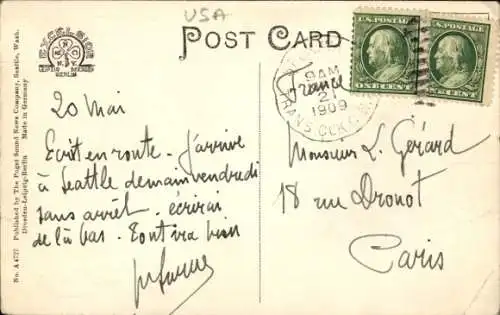 USA
POST CARD
EXCELSIOR
N.Y.
BERLIN
U.S. POSTAGE
ONE CENT
U.S. POSTAGE
CENT
9 AM
21
1909
TRANS. CLK
France
20 Mai
Ecrit en route. J'arrive
à Seattle demain vendredi
sans arrêt. écrirai
de là bas. Tout va bien
Monsieur L. Gérard
18 rue Drouot
Paris
No. A 4777 Published by The Puget Sound News Company, Seattle, Wash.
Dresden-Leipzig-Berlin Made in Germany